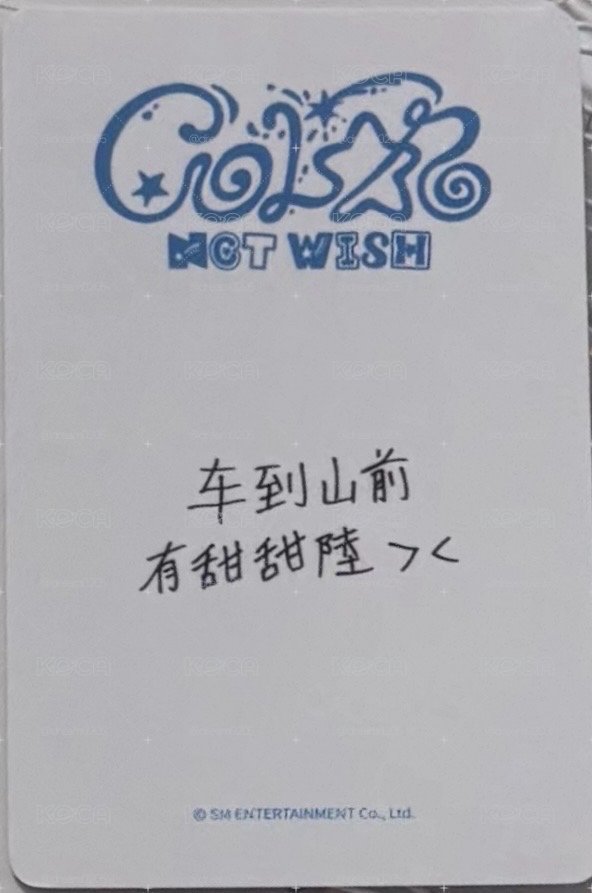 COLOR
NCT WISH
车到山前
有甜甜陸 ><
© SM ENTERTAINMENT Co., Ltd.
KOCA